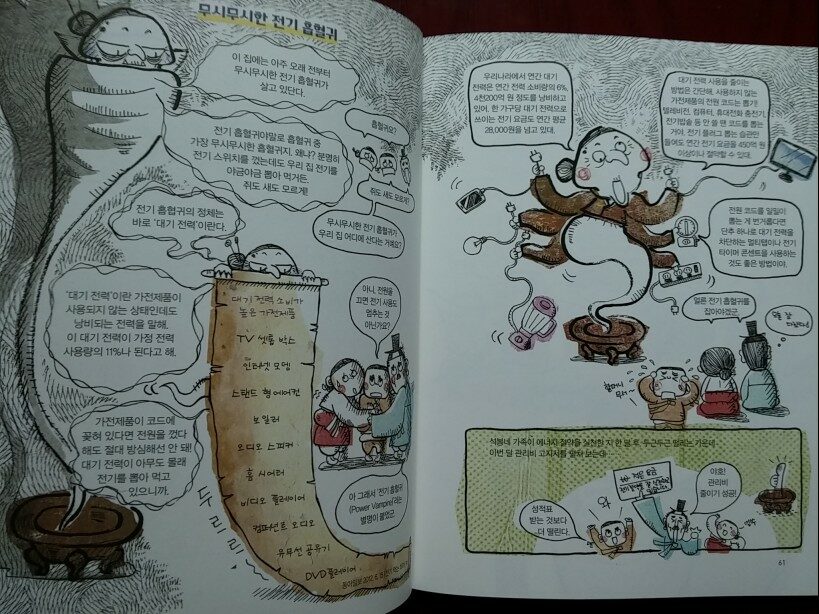 무시무시한 전기 흡혈귀
이 집에는 아주 오래 전부터
무시무시한 전기 흡혈귀가
살고 있단다.
흡혈귀요?
전기 흡혈귀야말로 흡혈귀 중
가장 무시무시한 흡혈귀지. 왜냐? 분명히
전기 스위치를 껐는데도 우리 집 전기를
야금야금 뽑아 먹거든.
쥐도 새도 모르게!
쥐도 새도 모르게?
무시무시한 전기 흡혈귀가
우리 집 어디에 산다는 거예요?
전기 흡혈귀의 정체는
바로 '대기 전력'이란다.
'대기 전력'이란 가전제품이
사용되지 않는 상태인데도
낭비되는 전력을 말해.
이 대기 전력이 가정 전력
사용량의 11%나 된다고 해.
가전제품이 코드에
꽂혀 있다면 전원을 껐다
해도 절대 방심해선 안 돼!
대기 전력이 아무도 몰래
전기를 뽑아 먹고
있으니까.
대기 전력 소비가
높은 가전제품
TV 셋톱 박스
인터넷 모뎀
스탠드 형 에어컨
보일러
오디오 스피커
홈 시어터
비디오 플레이어
컴포넌트 오디오
유무선 공유기
DVD 플레이어
두리리
아니, 전원을
끄면 전기 사용도
멈추는 것
아닌가요?
아 그래서 '전기 흡혈귀
(Power Vampire)'라는
별명이 붙었군.
우리나라에서 연간 대기
전력은 연간 전력 소비량의 6%,
4천200억 원 정도를 낭비하고
있어. 한 가구당 대기 전력으로
쓰이는 전기 요금도 연간 평균
28,000원을 넘고 있대.
대기 전력 사용을 줄이는
방법은 간단해. 사용하지 않는
가전제품의 전원 코드는 뽑기!
텔레비전, 컴퓨터, 휴대전화 충전기,
전기밥솥 등 안 쓸 땐 코드를 뽑는
거야. 전기 플러그 뽑는 습관만
들여도 연간 전기 요금을 450억 원
이상이나 절약할 수 있대.
전원 코드를 일일이
뽑는 게 번거롭다면
단추 하나로 대기 전력을
차단하는 멀티탭이나 전기
타이머 콘센트를 사용하는
것도 좋은 방법이야.
얼른 전기 흡혈귀를
잡아야겠군.
할머니
무서~
석봉네 가족이 에너지 절약을 실천한 지 한 달 후. 두근두근 떨리는 가운데
이번 달 관리비 고지서를 펼쳐 보는데
성적표
받는 것보다
더 떨린다.
와
야호!
관리비
줄이기 성공!
61